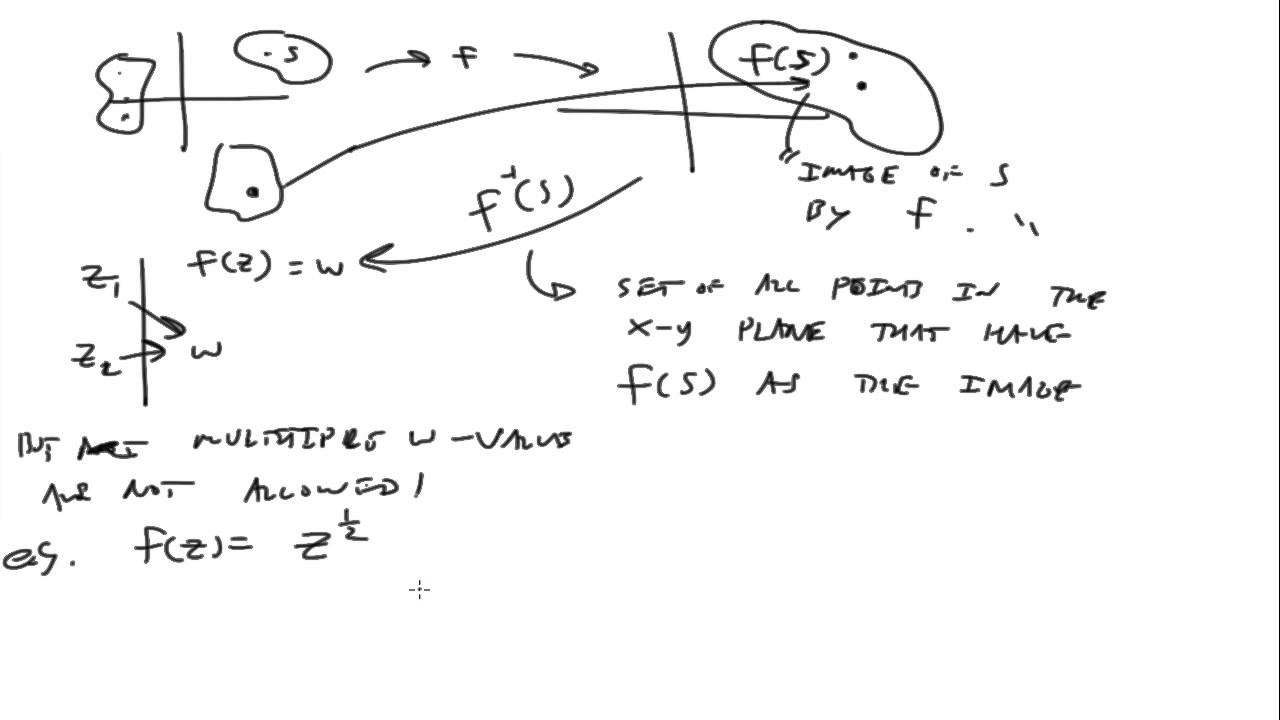 S
→ f →
f(S)
"IMAGE OF S
BY f. "
f⁻¹(S)
f(z) = w
SET OF ALL POINTS IN THE
X-Y PLANE THAT HAVE
f(S) AS THE IMAGE
z₁
z₂ → w
BUT MULTIPLE W-VALUES
ARE NOT ALLOWED!
eg. f(z) = z^½